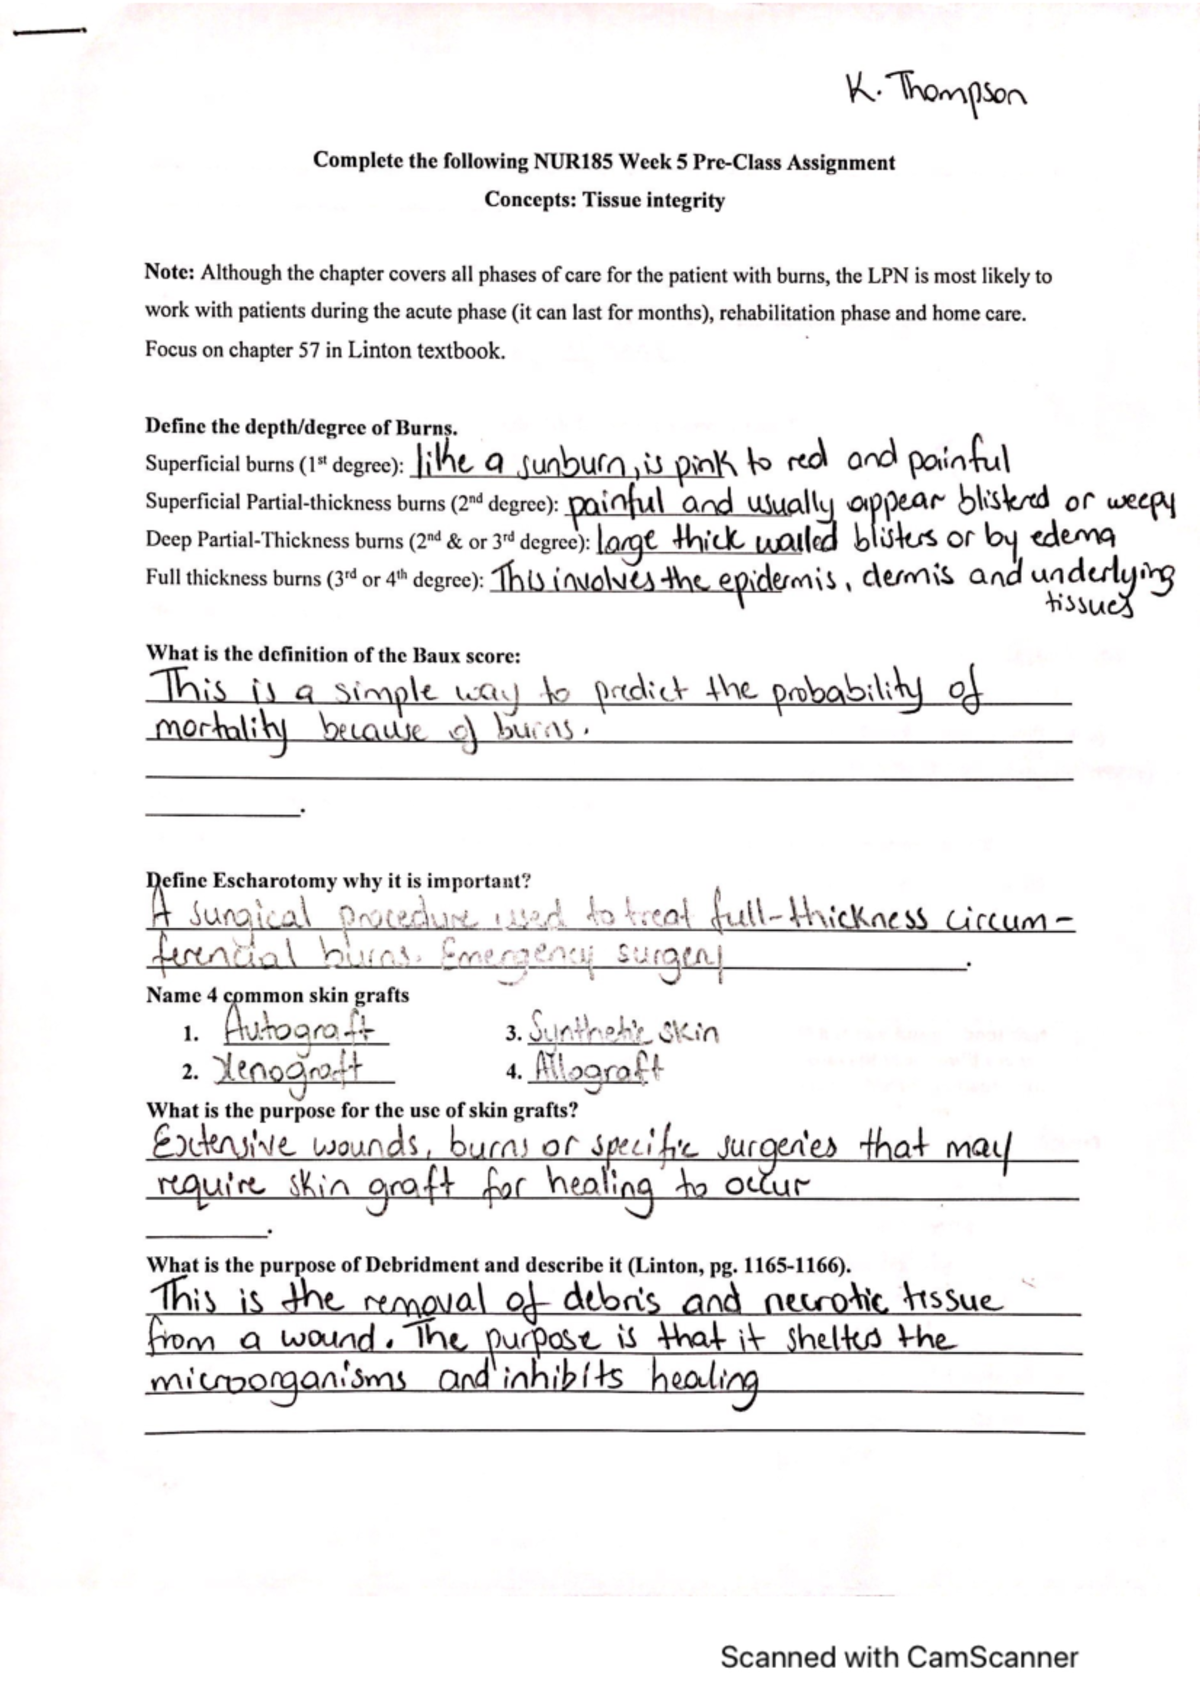 K. Thompson
Complete the following NUR185 Week 5 Pre-Class Assignment
Concepts: Tissue integrity
Note: Although the chapter covers all phases of care for the patient with burns, the LPN is most likely to
work with patients during the acute phase (it can last for months), rehabilitation phase and home care.
Focus on chapter 57 in Linton textbook.
Define the depth/degree of Burns.
Superficial burns (1st degree): like a sunburn, is pink to red and painful
Superficial Partial-thickness burns (2nd degree): painful and usually appear blistered or weepy
Deep Partial-Thickness burns (2nd & or 3rd degree): large thick walled blisters or by edema
Full thickness burns (3rd or 4th degree): This involves the epidermis, dermis and underlying
tissues
What is the definition of the Baux score:
This is a simple way to predict the probability of
mortality because of burns.
Define Escharotomy why it is important?
A surgical procedure used to treat full-thickness circum-
ferencial burns. Emergency surgery.
Name 4 common skin grafts
1. Autograft 3. Synthetic skin
2. Xenograft 4. Allograft
What is the purpose for the use of skin grafts?
Extensive wounds, burns or specific surgeries that may
require skin graft for healing to occur
.
What is the purpose of Debridment and describe it (Linton, pg. 1165-1166).
This is the removal of debris and necrotic tissue
from a wound. The purpose is that it shelters the
microorganisms and inhibits healing
Scanned with CamScanner